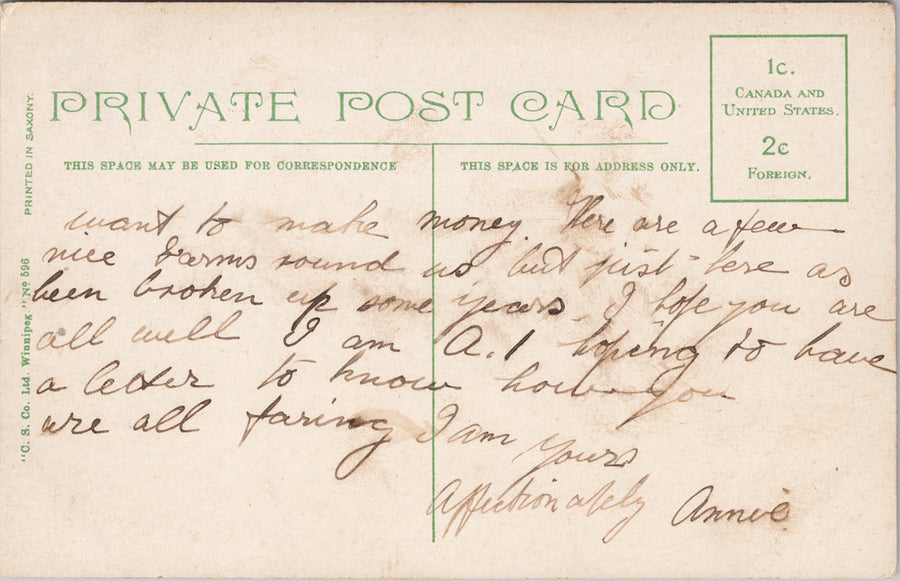 PRIVATE POST CARD
1c.
CANADA AND
UNITED STATES.
2c
FOREIGN.
THIS SPACE MAY BE USED FOR CORRESPONDENCE
THIS SPACE IS FOR ADDRESS ONLY.
PRINTED IN SAXONY.
"C. S. Co. Ltd. Winnipeg." No 596
want to make money. There are a few
nice Farms round us but just here as
been broken up some years. I hope you are
all well I am A.1 hoping to have
a letter to know how you
are all faring I am
yours
Affectionately Annie